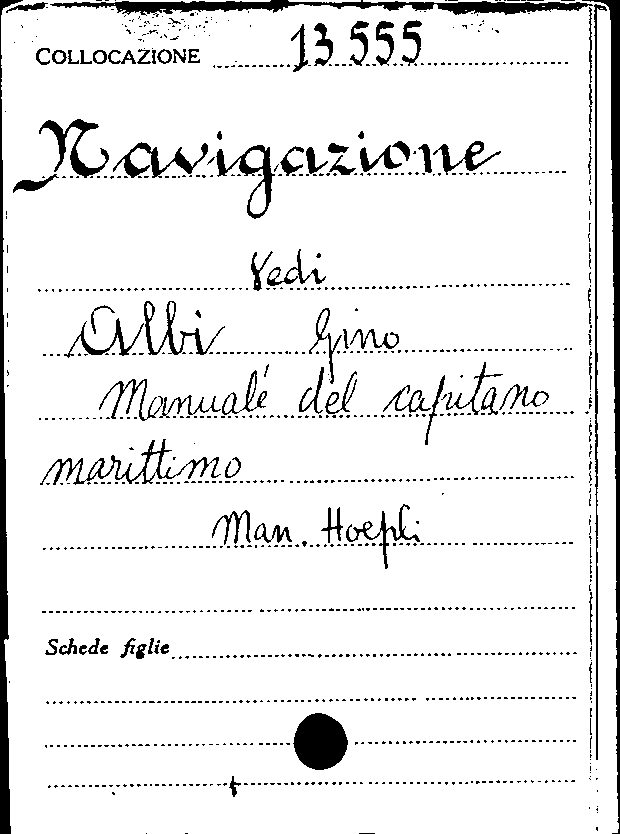 COLLOCAZIONE 13555
Navigazione
Vedi
Albi Gino
Manuale del capitano
marittimo
Man. Hoepli
Schede figlie